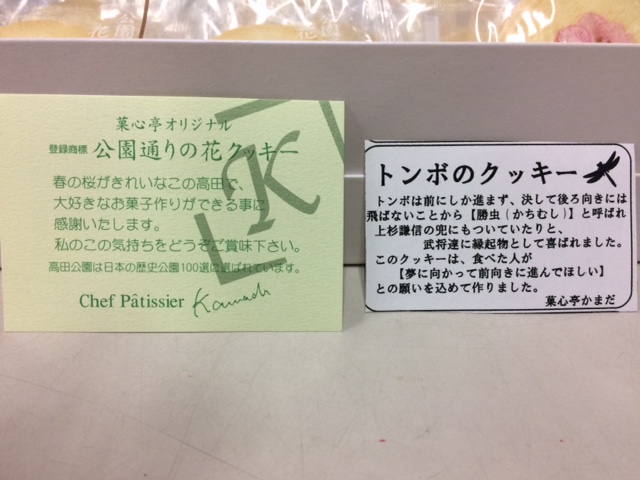 菓心亭オリジナル
登録商標 公園通りの花クッキー
春の桜がきれいなこの高田で、
大好きなお菓子作りができる事に
感謝いたします。
私のこの気持ちをどうぞご賞味下さい。
高田公園は日本の歴史公園100選に選ばれています。
Chef Pâtissier
K
トンボのクッキー
トンボは前にしか進まず、決して後ろ向きには
飛ばないことから【勝虫(かちむし)】と呼ばれ
上杉謙信の兜にもついていたりと、
武将達に縁起物として喜ばれました。
このクッキーは、食べた人が
【夢に向かって前向きに進んでほしい】
との願いを込めて作りました。
菓心亭かまだ